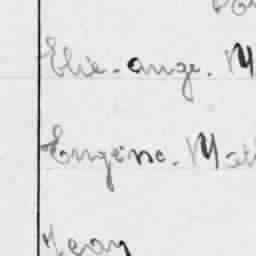 Elie-ange. M
Eugène. Mat
Jean